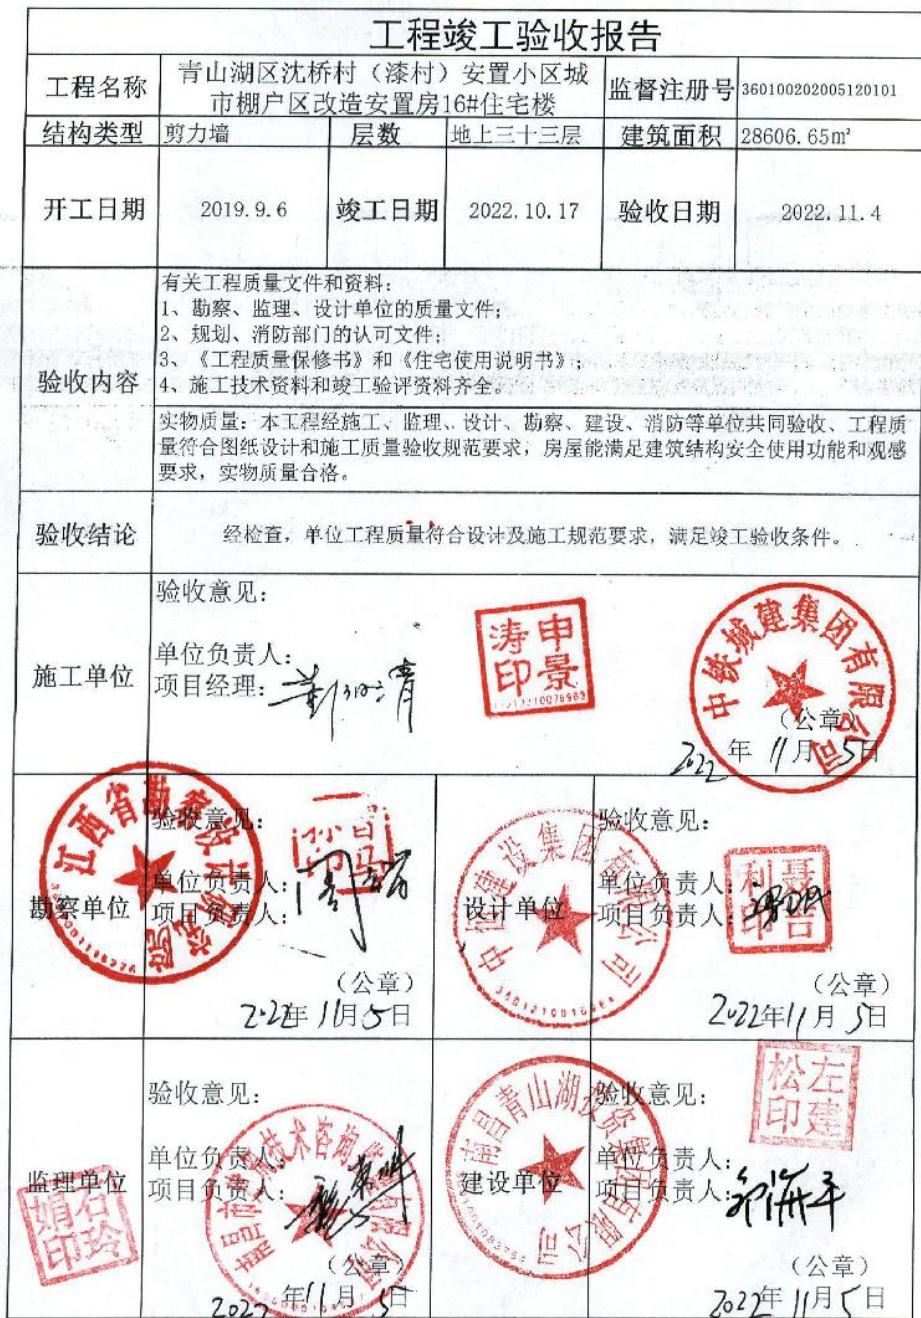 工程竣工验收报告
工程名称
青山湖区沈桥村（漆村）安置小区城
市棚户区改造安置房16#住宅楼
监督注册号
360100202005120101
结构类型 剪力墙 层数 地上三十三层 建筑面积 28606.65㎡
开工日期 2019.9.6 竣工日期 2022.10.17 验收日期 2022.11.4
验收内容
有关工程质量文件和资料：
1、勘察、监理、设计单位的质量文件；
2、规划、消防部门的认可文件；
3、《工程质量保修书》和《住宅使用说明书》；
4、施工技术资料和竣工验评资料齐全。
实物质量：本工程经施工、监理、设计、勘察、建设、消防等单位共同验收、工程质
量符合图纸设计和施工质量验收规范要求，房屋能满足建筑结构安全使用功能和观感
要求，实物质量合格。
验收结论
经检查，单位工程质量符合设计及施工规范要求，满足竣工验收条件。
施工单位
验收意见：
单位负责人：
项目经理：
申景涛印
中铁城建集团有限公司
（公章）
2022年11月5日
勘察单位
验收意见：
单位负责人：
项目负责人：
江西省勘察设计研究院
（公章）
2022年11月5日
设计单位
验收意见：
单位负责人：
项目负责人：
聂吉利印
中恒建设集团有限公司
（公章）
2022年11月5日
监理单位
验收意见：
单位负责人：
项目负责人：
石玲娟印
（公章）
2022年11月5日
建设单位
验收意见：
单位负责人：
项目负责人：
左建松印
南昌青山湖投资集团有限公司
（公章）
2022年11月5日